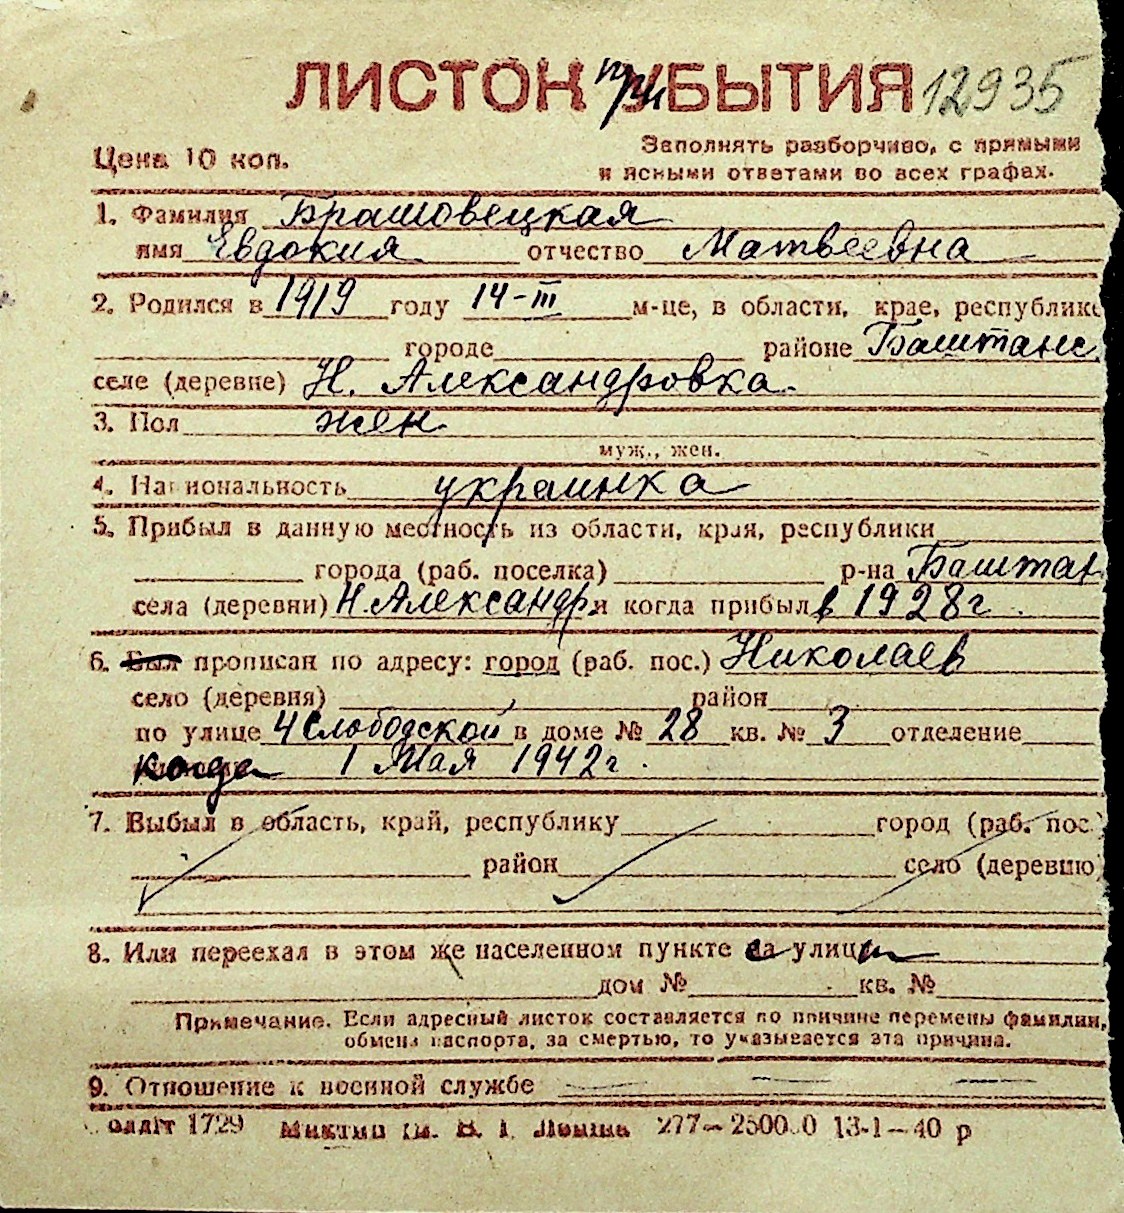 ЛИСТОК при УБЫТИЯ 12935
Цена 10 коп.
Заполнять разборчиво, с прямыми
и ясными ответами во всех графах.
1. Фамилия Брашовецкая
имя Евдокия отчество Матвеевна
2. Родился в 1919 году 14-III м-це, в области, крае, республике
городе районе Баштанс
селе (деревне) Н. Александровка.
3. Пол жен
муж., жен.
4. Национальность украинка
5. Прибыл в данную местность из области, края, республики
города (раб. поселка) р-на Баштан
села (деревни) Н.Александр. и когда прибыл в 1928 г.
6. Был прописан по адресу: город (раб. пос.) Николаев
село (деревня) район
по улице 4 Слободской в доме № 28 кв. № 3 отделение
когда 1 Мая 1942 г.
7. Выбыл в область, край, республику город (раб. пос.)
район село (деревню)
8. Или переехал в этом же населенном пункте с улицы
дом № кв. №
Примечание. Если адресный листок составляется по причине перемены фамилии,
обмена паспорта, за смертью, то указывается эта причина.
9. Отношение к военной службе
1729 277— 13-1—40 р